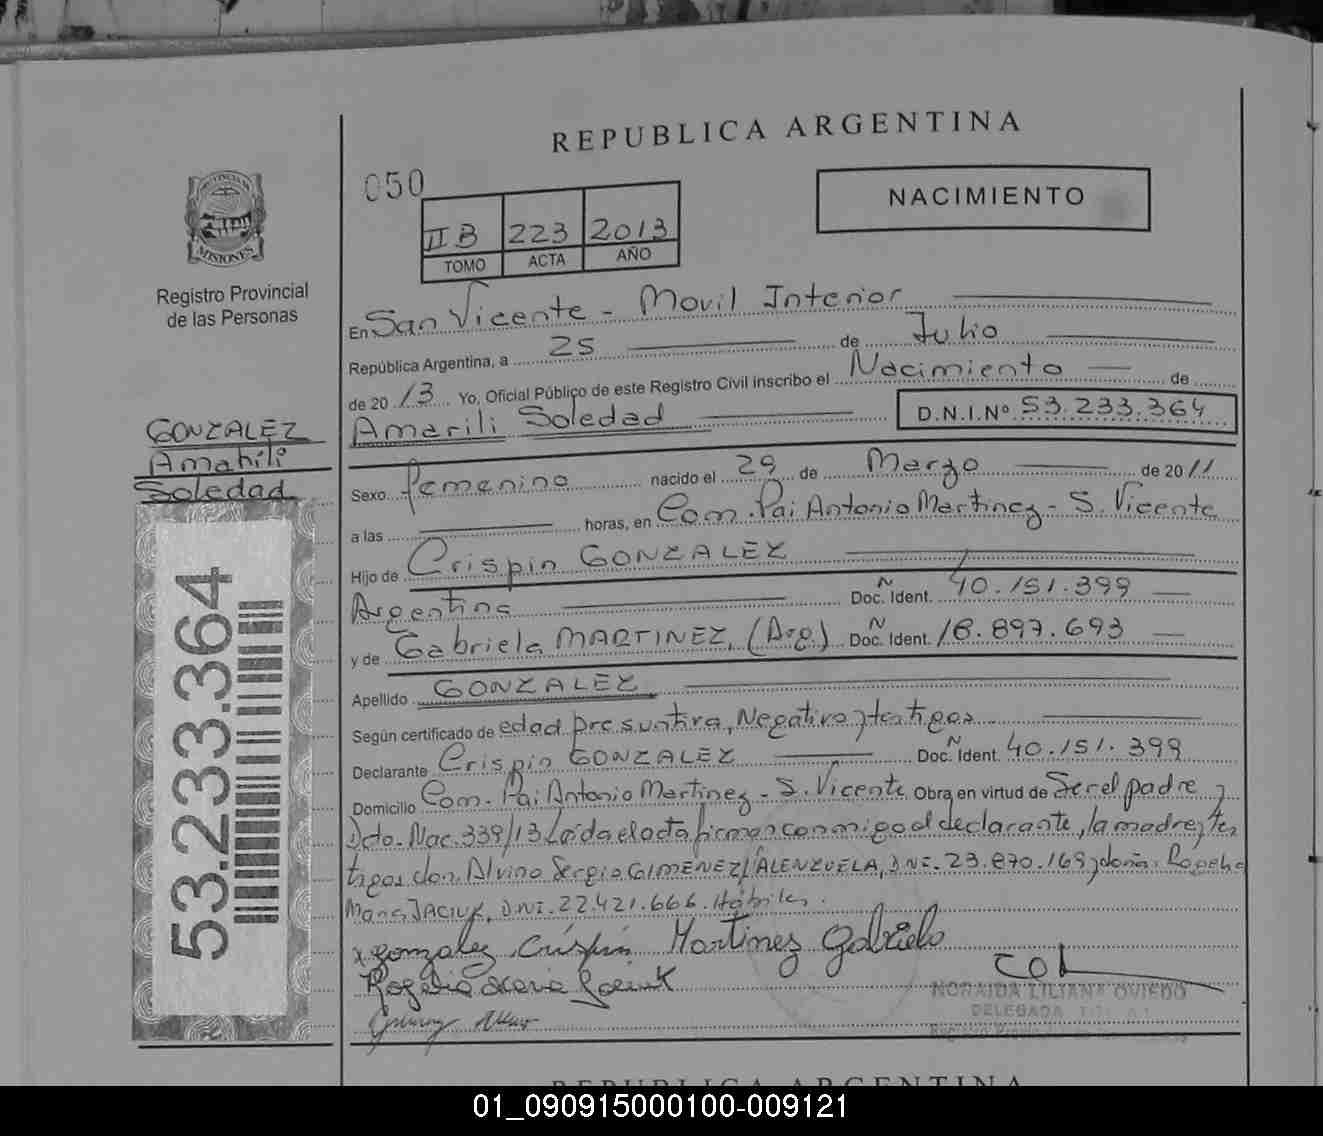 REPUBLICA ARGENTINA
050
NACIMIENTO
II B 223 2013
TOMO ACTA AÑO
PROVINCIA DE
MISIONES
Registro Provincial
de las Personas
En San Vicente - Movil Interior
República Argentina, a 25 de Julio
de 2013 Yo, Oficial Público de este Registro Civil inscribo el Nacimiento de
Amarili Soledad D.N.I.Nº 53.233.364
GONZALEZ
Amarili
Soledad
Sexo femenino nacido el 29 de Marzo de 2011
a las horas, en Com. Pai Antonio Martinez - S. Vicente
Hijo de Crispin GONZALEZ
Argentina Doc. Ident. 40.151.399
y de Gabriela MARTINEZ, (Arg.) Doc. Ident. 18.897.693
Apellido GONZALEZ
Según certificado de edad presuntiva, Negativo y testigos
Declarante Crispin GONZALEZ Doc. Ident. 40.151.399
Domicilio Com. Pai Antonio Martinez - S. Vicente Obra en virtud de Ser el padre y
Dcto. Nac. 339/13 Leida el acta firman conmigo el declarante, la madre y tes
tigos don. Alvino Sergio GIMENEZ VALENZUELA, DNI. 23.870.169 y doña: Rogelia
Maria JACIUK, DNI. 22.421.666. Hábiles.
x gonzalez Crispin Martinez Gabriela
Rogelia Maria Jaciuk
NORAIDA LILIANA OVIEDO
DELEGADA
53.233.364
REPUBLICA ARGENTINA
01_090915000100-009121